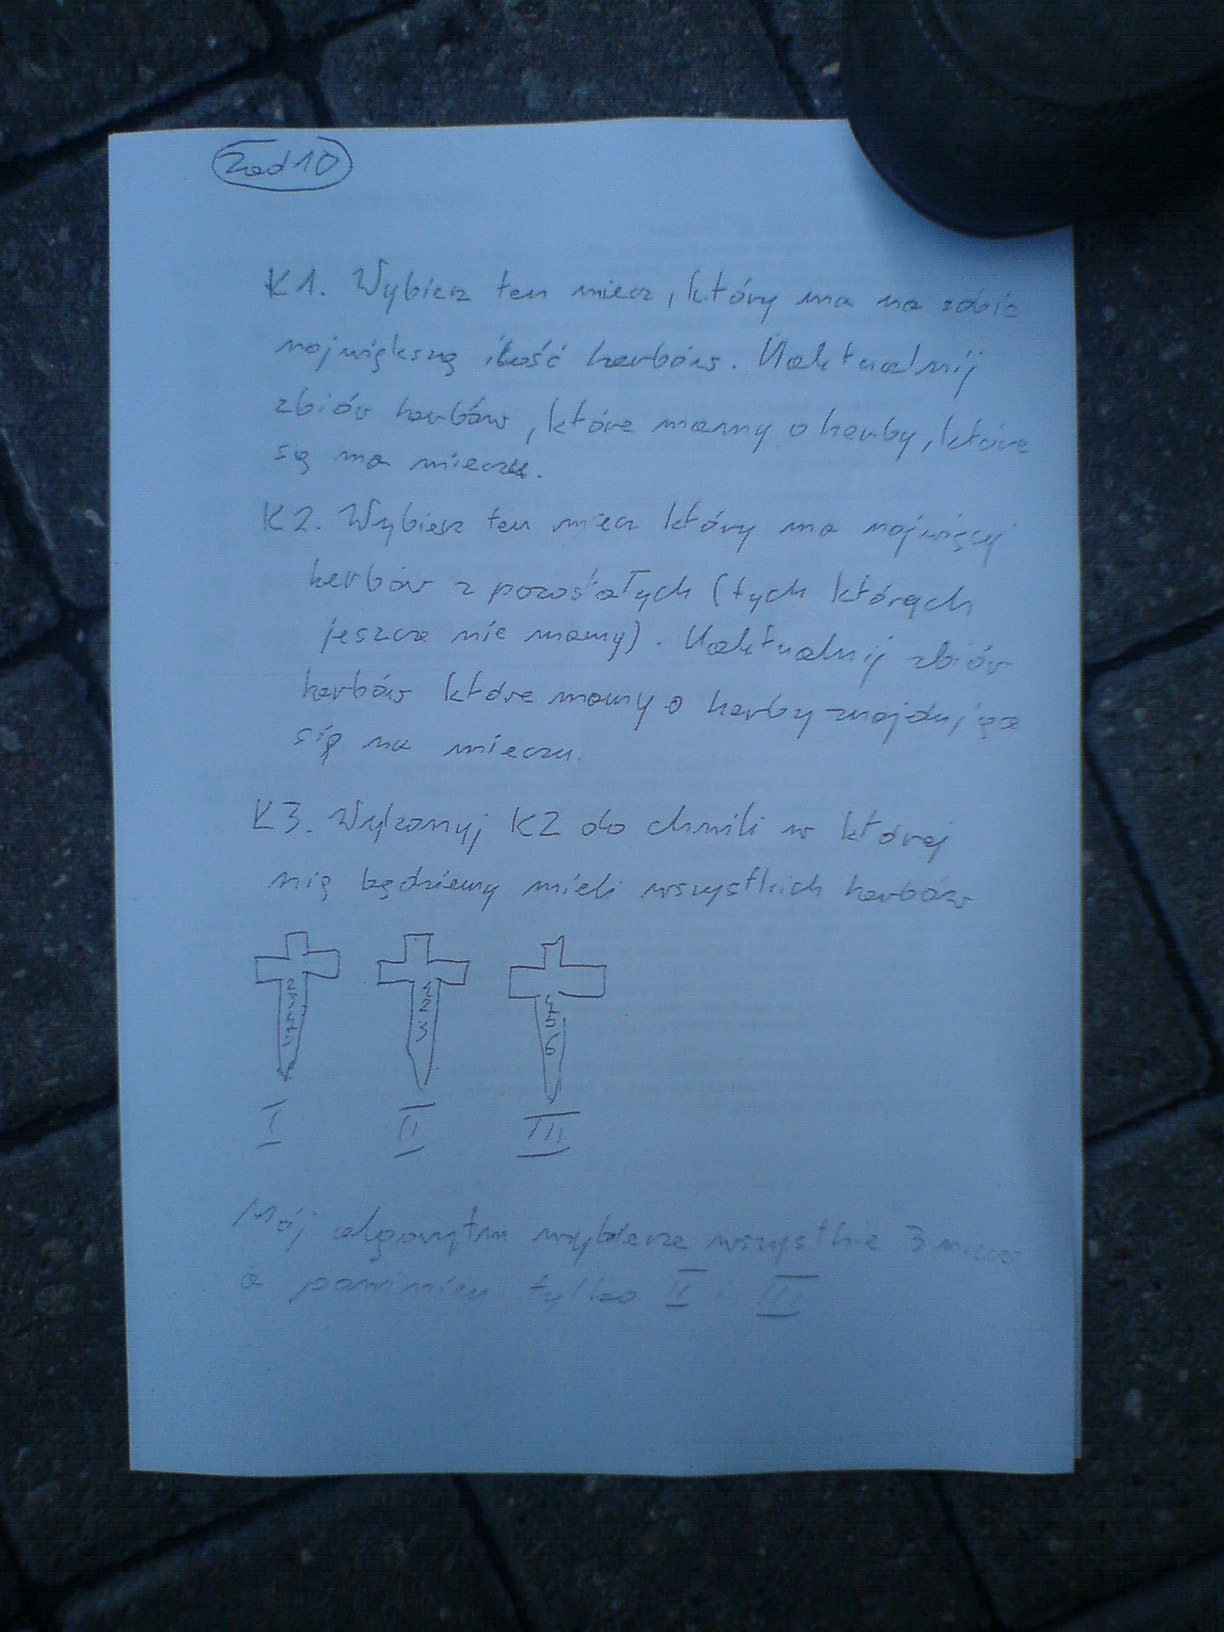 Zad 10
K1. Wybierz ten miecz, który ma na sobie
największą ilość herbów. Uaktualnij
zbiór herbów, które mamy o herby, które
są na mieczu.
K2. Wybierz ten miecz który ma najwięcej
herbów z pozostałych (tych których
jeszcze nie mamy). Uaktualnij zbiór
herbów które mamy o herby znajdujące
się na mieczu.
K3. Wykonuj K2 do chwili w której
nie będziemy mieli wszystkich herbów
I II III
Mój algorytm wybierze wszystkie 3 miecze
a powinien tylko II i III